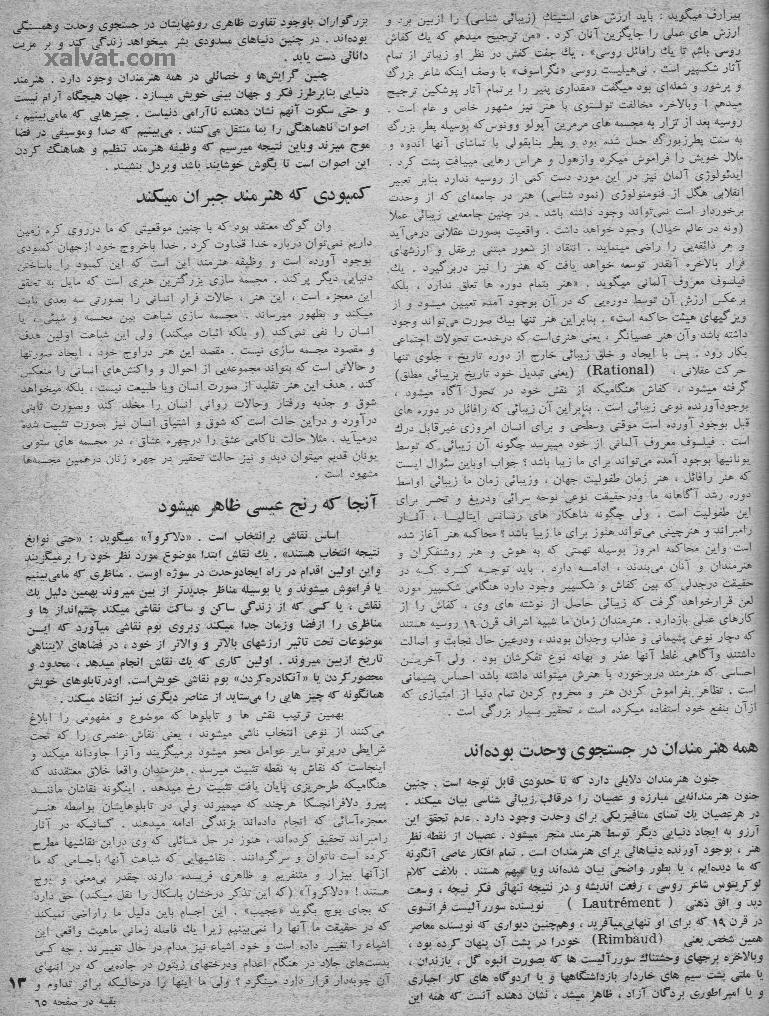 پیرارف میگوید : باید ارزش های استتیک (زیبائی شناسی) را ازبین برد و
ارزش های عملی را جایگزین آنان کرد . «من ترجیح میدهم که یك کفاش
روسی باشم تا یك رافائل روسی» . یك جفت کفش در نظر او زیباتر از تمام
آثار شکسپیر است . نی‌هیلیست روسی «نگراسوف» با وصف اینکه شاعر بزرگ
و پرشور و شعله‌ای بود میگفت «مقداری پنیر را برتمام آثار پوشکین ترجیح
میدهم ! وبالاخره مخالفت تولستوی با هنر نیز مشهور خاص و عام است .
روسیه بعد از تزار به مجسمه های مرمرین آپولو وونوس‌که بوسیله پطر بزرگ
به سنت پطرزبورگ حمل شده بود و پطر بنابقولی با تماشای آنها اندوه و
ملال خویش را فراموش میکرد وازهول و هراس رهایی مییافت پشت کرد .
ایدئولوژی آلمان نیز در این مورد دست کمی از روسیه ندارد بنابر تعبیر
انقلابی هگل از فنومنولوژی (نمود شناسی) هنر در جامعه‌ای که از وحدت
برخوردار است نمی‌تواند وجود داشته باشد . در چنین جامعه‌یی زیبائی عملا
(ونه در عالم خیال) وجود خواهد داشت . واقعیت بصورت عقلانی درمی‌آید
و هر ذائقه‌یی را راضی مینماید . انتقاد از شعور مبتنی برعقل و ارزشهای
فرار بالاخره آنقدر توسعه خواهد یافت که هنر را نیز دربرگیرد . یك
فیلسوف معروف آلمانی میگوید . «هنر بتمام دوره ها تعلق ندارد ، بلکه
برعکس ارزش آن توسط دوره‌یی که در آن بوجود آمده تعیین میشود و از
ویژگیهای هیئت حاکمه است» . بنابراین هنر تنها بیك صورت می‌تواند وجود
داشته باشد وآن هنر عصیانگر ، یعنی هنری‌است که درخدمت تحولات اجتماعی
بکار رود . پس با ایجاد و خلق زیبائی خارج از دوره تاریخ ، جلوی تنها
حرکت عقلانی ، (Rational) (یعنی تبدیل خود تاریخ بزیبائی مطلق)
گرفته میشود . کفاش هنگامیکه از نقش خود در تحول آگاه میشود ،
بوجودآورنده نوعی زیبائی است . بنابراین آن زیبائی که رافائل در دوره های
قبل بوجود آورده است موقتی وسطحی و برای انسان امروزی غیرقابل درك
است . فیلسوف معروف آلمانی از خود میپرسد چگونه آن زیبائی که توسط
یونانیها بوجود آمده می‌تواند برای ما زیبا باشد ؟ جواب اوباین سئوال اینست
که هنر رافائل ، هنر زمان طفولیت جهان ، وزیبائی زمان ما زیبائی اواسط
دوره رشد آگاهانه ما ودرحقیقت نوعی نوحه سرائی ودریغ و تحسر برای
این طفولیت است ، ولی چگونه شاهکار های رنسانس ایتالیــا ، آثــار
رامبراند و هنرچینی می‌تواند هنوز برای ما زیبا باشد ؟ محاکمه هنر آغاز شده
است واین محاکمه امروز بوسیله تهمتی که به هوش و هنر روشنفکران و
هنرمندان و آنان می‌بندند ، ادامــه دارد . باید توجــه کــرد کــه در
حقیقت درجدلی که بین کفاش و شکسپیر وجود دارد هنگامی شکسپیر مورد
لعن قرارخواهد گرفت که زیبائی حاصل از نوشته های وی ، کفاش را از
کارهای عملی بازدارد . هنرمندان زمان ما شبیه اشراف قرن ۱۹ روسیه هستند
که دچار نوعی پشیمانی و عذاب وجدان بودند ، ودرعین حال نجابت و اصالت
داشتند وآگاهی غلط آنها عذر و بهانه نوع تفکرشان بود . ولی آخریــن
احساسی که هنرمند دربرخورد با هنرش میتواند داشته باشد احساس پشیمانی
است . تظاهر بفراموش کردن هنر و محروم کردن تمام دنیا از امتیازی که
ازآن بنفع خود استفاده میکرده است ، تحقیر بسیار بزرگی است .
همه هنرمندان در جستجوی وحدت بوده‌اند
جنون هنرمندان دلایلی دارد که تا حدودی قابل توجه است . چنین
جنون هنرمندانه‌یی مبارزه و عصیان را درقالب‌زیبائی شناسی بیان میکند .
در هرعصیان یك تمنای متافیزیکی برای وحدت وجود دارد . عدم تحقق این
آرزو به ایجاد دنیایی دیگر توسط هنرمند منجر میشود . عصیان از نقطه نظر
هنر ، بوجود آورنده دنیاهائی برای هنرمندان است . تمام افکار عاصی آنگونه
که ما دیده‌ایم ، یا بطور واضحی بیان شده‌اند ویا مبهم هستند . بلاغت کلام
لوکریتوس شاعر روسی ، رفعت اندیشه و در نتیجه تنهائی فکر نیچه ، وسعت
دید و افق ذهنی ( Lautrément ) نویسنده سوررآلیست فرانسوی
در قرن ۱۹ که برای او تنهایی‌میآفرید ، وهم‌چنین دیواری که نویسنده معاصر
همین شخص یعنی (Rimbaud) خودرا در پشت آن پنهان کرده بود ،
وبالاخره برجهای وحشتناك سوررآلیست ها که بصورت انبوه گل ، بازندان ،
یا ملتی پشت سیم های خاردار بازداشتگاهها و یا اردوگاه های کار اجباری
و یا امپراطوری بردگان آزاد ، ظاهر میشد ، نشان دهنده آنست که همه این
بزرگواران باوجود تفاوت ظاهری روشهایشان در جستجوی وحدت وهمبستگی
بوده‌اند . در چنین دنیاهای مسدودی بشر میخواهد زندگی کند و بر مزیت
دانائی دست یابد .
xalvat.com
چنین گرایش‌ها و خصائلی در همه هنرمندان وجود دارد . هنرمند
دنیایی بنابرطرز فکر و جهان بینی خویش میسازد . جهان هیچگاه آرام نیست
و حتی سکوت آنهم نشان دهنده ناآرامی دنیاست . چیزهایی که مامی‌بینیم ،
اصوات ناهماهنگی را بما منتقل می‌کنند . می‌بینیم که صدا وموسیقی در فضا
موج میزند وباین نتیجه میرسیم که وظیفه هنرمند تنظیم و هماهنگ کردن
این اصوات است تا بگوش خوشایند باشد وبردل بنشیند .
کمبودی که هنرمند جبران میکند
وان گوگ معتقد بود که با چنین موقعیتی که ما درروی کره زمین
داریم نمی‌توان درباره خدا قضاوت کرد . خدا باخروج خود ازجهان کمبودی
بوجود آورده است و وظیفه هنرمند این است که این کمبود را باساختن
دنیایی دیگر پرکند . مجسمه سازی بزرگترین هنری است که مایل به تحقق
این معجزه است ، این هنر ، حالات فرار انسانی را بصورتی سه بعدی ثابت
میکند و بظهور میرساند . مجسمه سازی شباهت بین مجسمه و شیئی ، یا
انسان را نفی نمی‌کند (و بلکه اثبات میکند) ولی این شباهت اولین هدف
و مقصود مجسمه سازی نیست . مقصد این هنر دراوج خود ، ایجاد صورتها
و حالاتی است که بتواند مجموعه‌یی از احوال و واکنش‌های انسانی را منعکس
کند . هدف این هنر تقلید از صورت انسان ویا طبیعت نیست ، بلکه میخواهد
شوق و جذبه ورفتار وحالات روانی انسان را مخلد کند وبصورت ثابتی
درآورد و دراین حالت است که شوق و اشتیاق انسان نیز بصورت تثبیت شده
درمیآید . مثلا حالت ناکامی عشق را درچهره عشاق ، در مجسمه های ستونی
یونان قدیم میتوان دید و نیز حالت تحقیر در چهره زنان درهمین مجسمه‌ها
مشهود است .
آنجا که رنج عبسی ظاهر میشود
اساس نقاشی برانتخاب است . «دلاکروآ» میگوید : «حتی نوابغ
نتیجه انتخاب هستند» . یك نقاش ابتدا موضوع مورد نظر خود را برمیگزیند
واین اولین اقدام در راه ایجادوحدت در سوژه اوست . مناظری که مامی‌بینیم
یا فراموش میشوند و یا بوسیله مناظر جدیدتر از بین میروند بهمین دلیل یك
نقاش ، یا کسی که از زندگی ساکن و ساکت نقاشی میکند چشم‌انداز ها و
مناظری را ازفضا وزمان جدا میکند وبروی بوم نقاشی میآورد که ایــن
موضوعات تحت تاثیر ارزشهای بالاتر و والاتر از خود ، در فضاهای لایتناهی
تاریخ ازبین میروند . اولین کاری که یك نقاش انجام میدهد ، محدود و
محصورکردن یا «آنکادره‌کردن» بوم نقاشی خویش‌است. اودرتابلوهای خویش
همانگونه که چیز هایی را می‌ستاید از عناصر دیگری نیز انتقاد میکند .
بهمین ترتیب نقش ها و تابلوها که موضوع و مفهومی را ابلاغ
می‌کنند از نوعی انتخاب ناشی میشوند ، یعنی نقاش عنصری را که تحت
شرایطی درپرتو سایر عوامل محو میشود برمیگزیند وآنرا جاودانه میکند و
اینجاست که نقاش به نقطه تثبیت میرسد . هنرمندان واقعا خلاق معتقدند که
هنگامیکه طرحریزی پایان یافت تثبیت رخ میدهد . اینگونه نقاشان ماننــد
پیرو دلافرانچسکا هرچند که میمیرند ولی در تابلوهایشان بواسطه هنــر
معجزه‌آسائی که انجام داده‌اند بزندگی ادامه میدهند . کسانیکه در آثار
رامبراند تحقیق کرده‌اند ، هنوز در حل مسائلی که وی دراین نقاشیها مطرح
کرده است ناتوان و سرگردانند . نقاشیهایی که شباهت آنها باجسامی که ما
ازآنها بیزار و متنفریم و ظاهری فریبنده دارند چقدر بی‌معنی و پوچ
هستند ! «دلاکروآ» (که این تذکر درخشان باسکال را نقل میکند) حق دارد
که بجای پوچ بگوید «عجیب» . این اجسام باین دلیل ما راراضی نمیکند
که در حقیقت ما آنها را نمی‌بینیم زیرا یك فاصله زمانی ماهیت واقعی این
اشیاء را تغییر داده است و خود اشیاء نیز مدام در حال تغییرند . چه کسی
بدست‌های جلاد در هنگام اعدام ودرختهای زیتون در جاده‌یی که در انتهای
آن چوبه‌دار قرار دارد مینگرد ؟ ولی ما اینها را درحالیکه براثر تداوم و
بقیه در صفحه ۶۵
۱۳